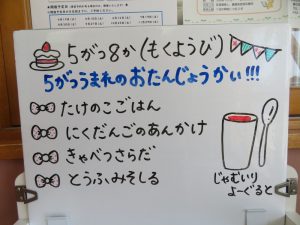 5がつ8か(もくようび)
5がつうまれのおたんじょうかい!!!
たけのこごはん
にくだんごのあんかけ
きゃべつさらだ
とうふみそしる
じゃむいり
よーぐると